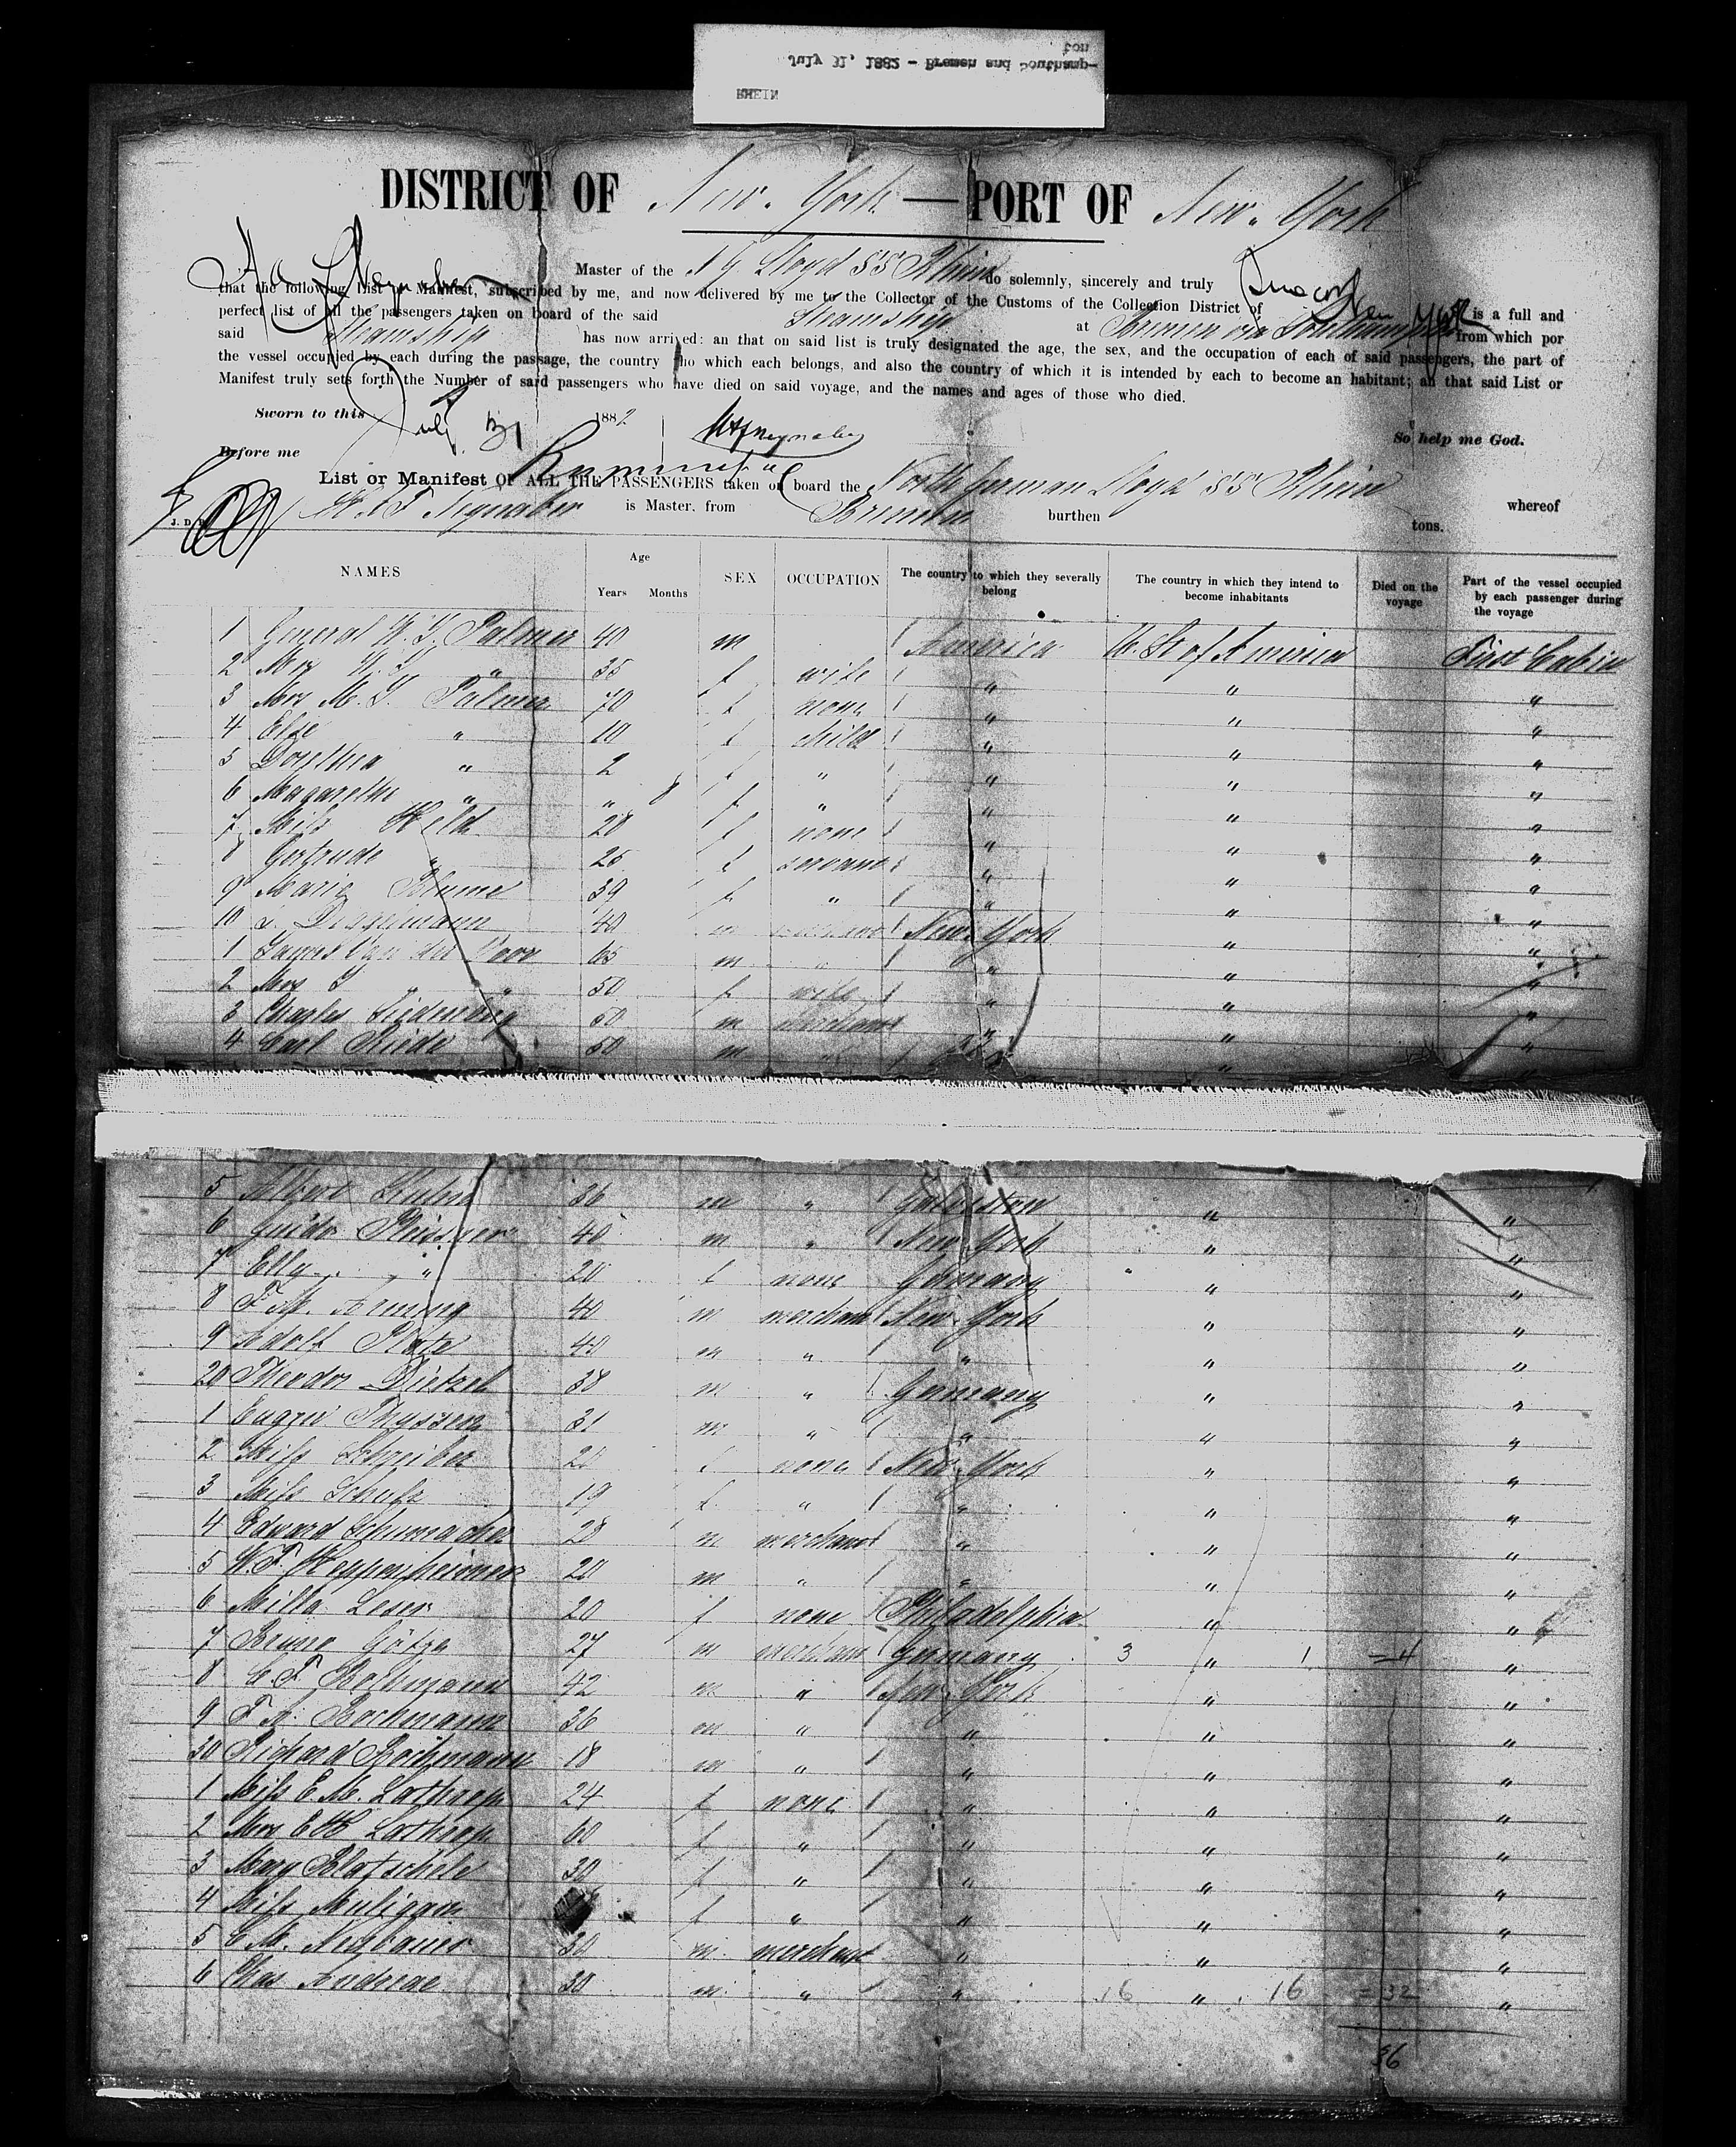 RHEIN
July 31, 1882 - Bremen and Southamp-
ton
DISTRICT OF New York — PORT OF New York
Master of the N G Lloyd SS Rhein do solemnly, sincerely and truly
that the following List or Manifest, subscribed by me, and now delivered by me to the Collector of the Customs of the Collection District of New York is a full and
perfect list of all the passengers taken on board of the said Steamship at Bremen via Southampton from which por
said Steamship has now arrived: an that on said list is truly designated the age, the sex, and the occupation of each of said passengers, the part of
the vessel occupied by each during the passage, the country who which each belongs, and also the country of which it is intended by each to become an habitant; an that said List or
Manifest truly sets forth the Number of said passengers who have died on said voyage, and the names and ages of those who died.
Sworn to this July 31 1882
So help me God.
Before me
List or Manifest OF ALL THE PASSENGERS taken on board the North German Lloyd SS Rhein whereof
J. D. is Master, from Bremen burthen tons.
NAMES Age Years Months SEX OCCUPATION The country to which they severally belong The country in which they intend to become inhabitants Died on the voyage Part of the vessel occupied by each passenger during the voyage
1 General W. J. Palmer 40 m America U. St of America First Cabin
2 Mrs W. J. " 35 f wife " " "
3 Mrs M. J. Palmer 70 f none " " "
4 Else " 10 f child " " "
5 Dorothea " 2 f " " " "
6 Magarethe " " 8 f " " " "
7 Miss Held 28 f none " " "
8 Gertrude " 25 f servant " " "
9 Marie Blume 39 f " " " "
10 40 m New York " "
1 James Van der 65 m " " " "
2 Mrs J " " 50 f wife " " "
3 Charles 50 m merchant " " "
4 Carl 50 m " " " "
5 Albert 36 m " Galveston " "
6 Guido Pleissner 40 m " New York " "
7 Elly " 20 f none Germany " "
8 F. M. 40 m merchant New York " "
9 Adolf Plate 40 m " " " "
20 Theodor Dietzel 38 m " Germany " "
1 Eugen Thyssen 31 m " " " "
2 Miss Schreiber 20 f none New York " "
3 Miss Schulz 19 f " " " "
4 Edward Schumacher 28 m merchant " " "
5 W. F. Heppenheimer 20 m " " " "
6 Milla Leser 20 f none Philadelphia " "
7 Bruno Götze 27 m merchant Germany 3 " 1 = 4 "
8 C. F. 42 m " New York " "
9 F. A. Bochmann 36 m " " " "
30 Richard Bochmann 18 m " " " "
1 Miss E. M. Lathrop 24 f none " " "
2 Mrs E H Lathrop 60 f " " " "
3 Mary Blatschele 30 f " " " "
4 Miss Muliggan f " " " "
5 C. M. 30 m merchant " " "
6 Chas Andreae 30 m " " 16 " 16 = 32 "
36